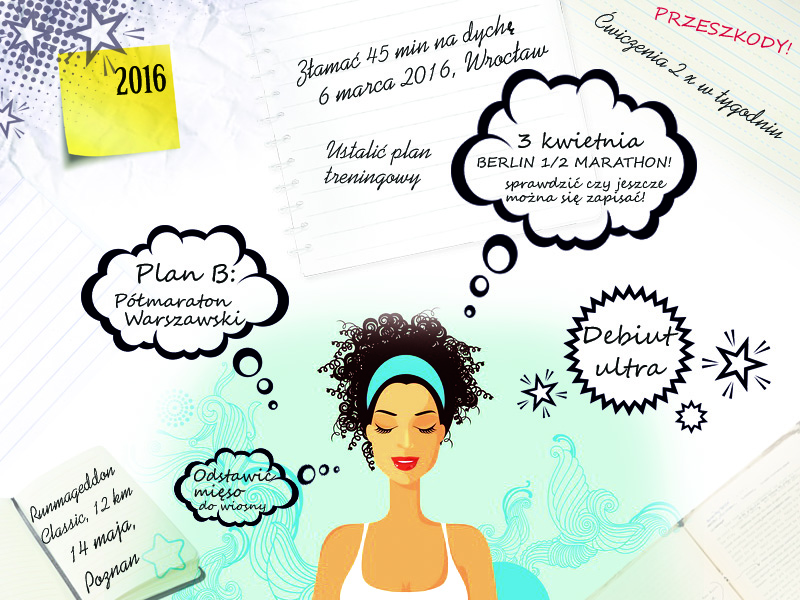 2016
Złamać 45 min na dychę
6 marca 2016, Wrocław
Ustalić plan
treningowy
PRZESZKODY!
Ćwiczenia 2 x w tygodniu
3 kwietnia
BERLIN 1/2 MARATHON!
sprawdzić czy jeszcze
można się zapisać!
Plan B:
Półmaraton
Warszawski
Debiut
ultra
Odstawić
mięso
do wiosny
Runmageddon
Classic, 12 km
14 maja,
Poznan